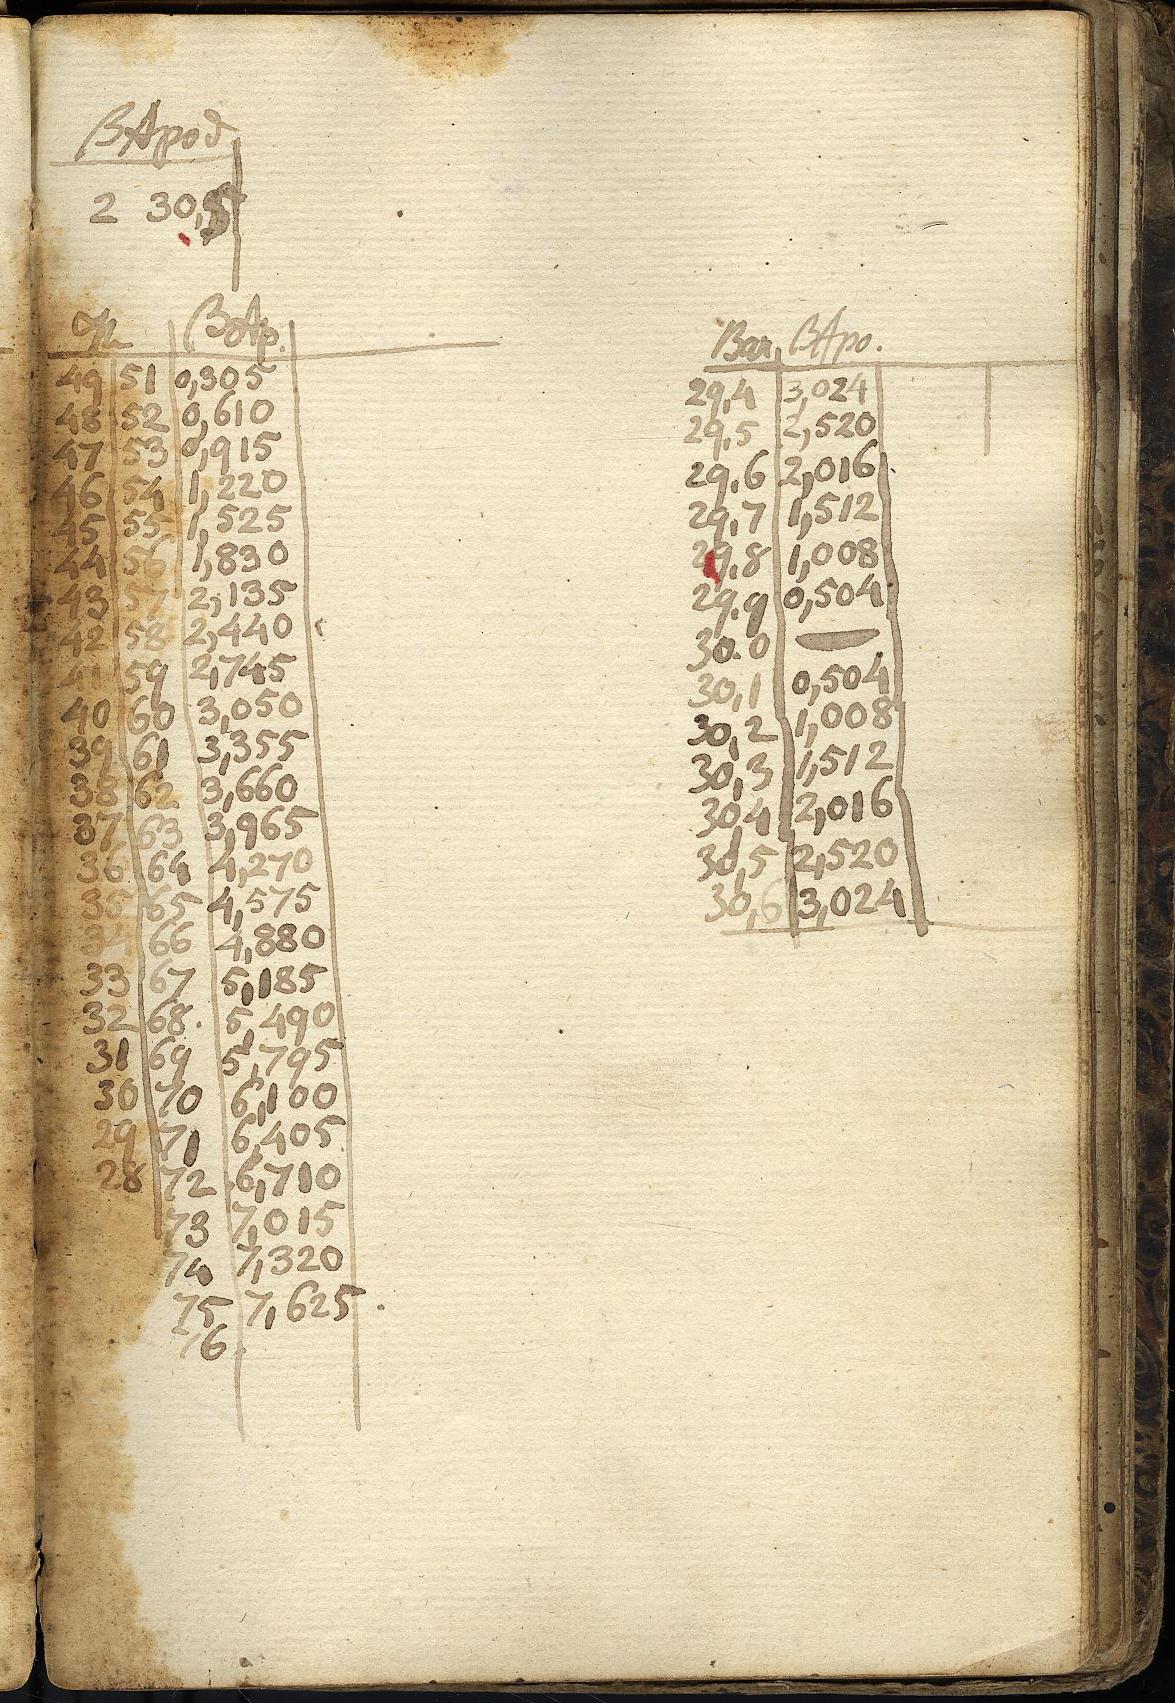 β Apod
2 30,5
Th β Ap.
49 51 0,305
48 52 0,610
47 53 0,915
46 54 1,220
45 55 1,525
44 56 1,830
43 57 2,135
42 58 2,440
41 59 2,745
40 60 3,050
39 61 3,355
38 62 3,660
37 63 3,965
36 64 4,270
35 65 4,575
34 66 4,880
33 67 5,185
32 68. 5,490
31 69 5,795
30 70 6,100
29 71 6,405
28 72 6,710
73 7,015
74 7,320
75 7,625
76
Bar, β Apo.
29,4 3,024
29,5 2,520
29,6 2,016
29,7 1,512
29,8 1,008
29,9 0,504
30.0 —
30,1 0,504
30,2 1,008
30,3 1,512
30,4 2,016
30,5 2,520
30,6 3,024